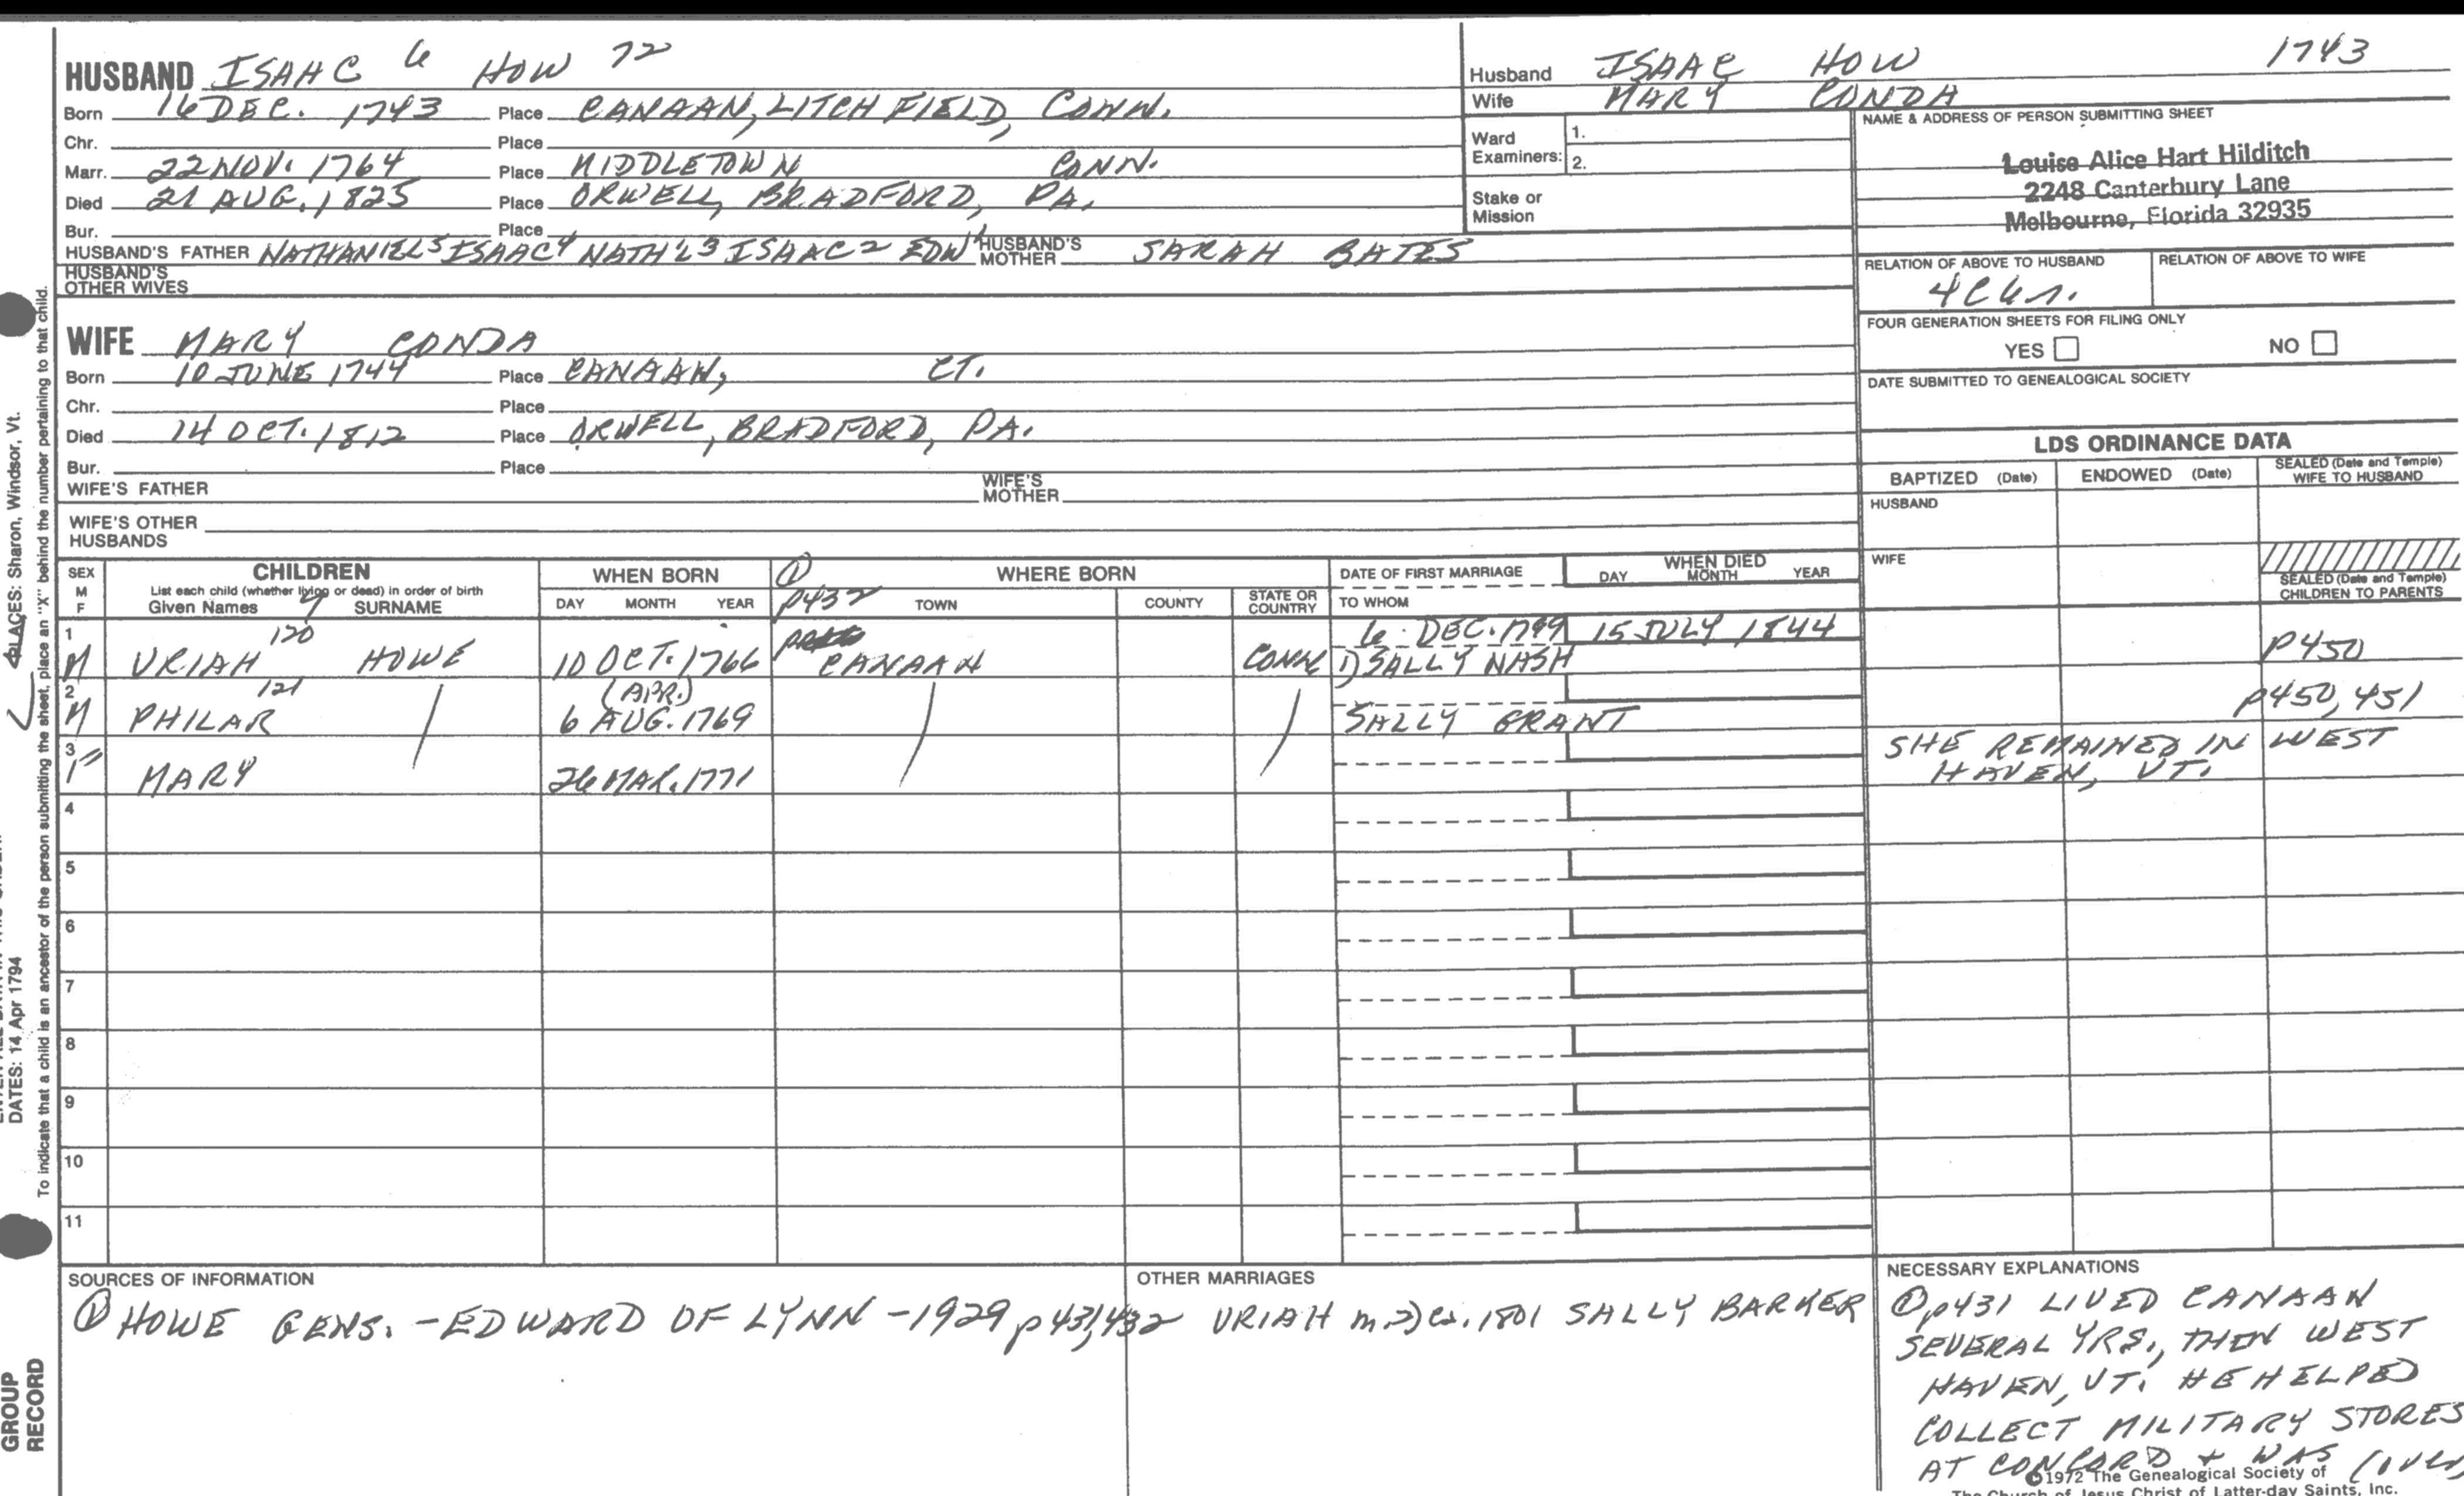 HUSBAND ISAAC 6 HOW 72
Born 16 DEC. 1743 Place CANAAN, LITCHFIELD, CONN.
Chr. Place
Marr. 22 NOV. 1764 Place MIDDLETOWN CONN.
Died 21 AUG. 1825 Place ORWELL, BRADFORD, PA.
Bur. Place
HUSBAND'S FATHER NATHANIEL5 ISAAC4 NATH'L3 ISAAC2 EDW1 HUSBAND'S MOTHER SARAH BATES
HUSBAND'S OTHER WIVES
WIFE MARY CONDA
Born 10 JUNE 1744 Place CANAAN, CT.
Chr. Place
Died 14 OCT. 1812 Place ORWELL, BRADFORD, PA.
Bur. Place
WIFE'S FATHER WIFE'S MOTHER
WIFE'S OTHER HUSBANDS
Husband ISAAC HOW 1743
Wife MARY CONDA
Ward Examiners: 1.
2.
Stake or Mission
NAME & ADDRESS OF PERSON SUBMITTING SHEET
Louise Alice Hart Hilditch
2248 Canterbury Lane
Melbourne, Florida 32935
RELATION OF ABOVE TO HUSBAND RELATION OF ABOVE TO WIFE
FOUR GENERATION SHEETS FOR FILING ONLY
YES NO
DATE SUBMITTED TO GENEALOGICAL SOCIETY
LDS ORDINANCE DATA
BAPTIZED (Date) ENDOWED (Date) SEALED (Date and Temple) WIFE TO HUSBAND
HUSBAND
WIFE
SEALED (Date and Temple) CHILDREN TO PARENTS
SEX M F
CHILDREN
List each child (whether living or dead) in order of birth
Given Names 7 SURNAME
WHEN BORN
DAY MONTH YEAR
① p432
WHERE BORN
TOWN COUNTY STATE OR COUNTRY
DATE OF FIRST MARRIAGE
TO WHOM
WHEN DIED
DAY MONTH YEAR
1 M URIAH 120 HOWE 10 OCT. 1766 CANAAN CONN 6 DEC. 1799 1) SALLY NASH 15 JULY 1844 p450
2 M PHILAR 121 (APR.) 6 AUG. 1769 SALLY GRANT p450, 451
3 F MARY 26 MAR. 1771 SHE REMAINED IN WEST HAVEN, VT.
4
5
6
7
8
9
10
11
SOURCES OF INFORMATION
① HOWE GENS. - EDWARD OF LYNN - 1929 p 431, 432
OTHER MARRIAGES
URIAH m. 2) ca. 1801 SALLY BARKER
NECESSARY EXPLANATIONS
① p431 LIVED CANAAN
SEVERAL YRS., THEN WEST
HAVEN, VT. HE HELPED
COLLECT MILITARY STORES
AT CONCORD + WAS (over)
©1972 The Genealogical Society of
The Church of Jesus Christ of Latter-day Saints, Inc.
PLACES: Sharon, Windsor, Vt.
DATES: 14 Apr 1794
To indicate that a child is an ancestor of the person submitting the sheet, place an "X" behind the number pertaining to that child.
GROUP
RECORD